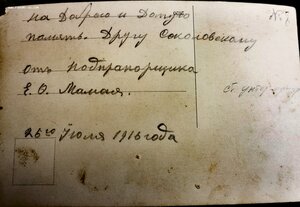 на Добрую и Долгую
память. Другу Соколовскому
отъ подпрапорщика
Е. О. Мамая.
26го Июля 1916 года